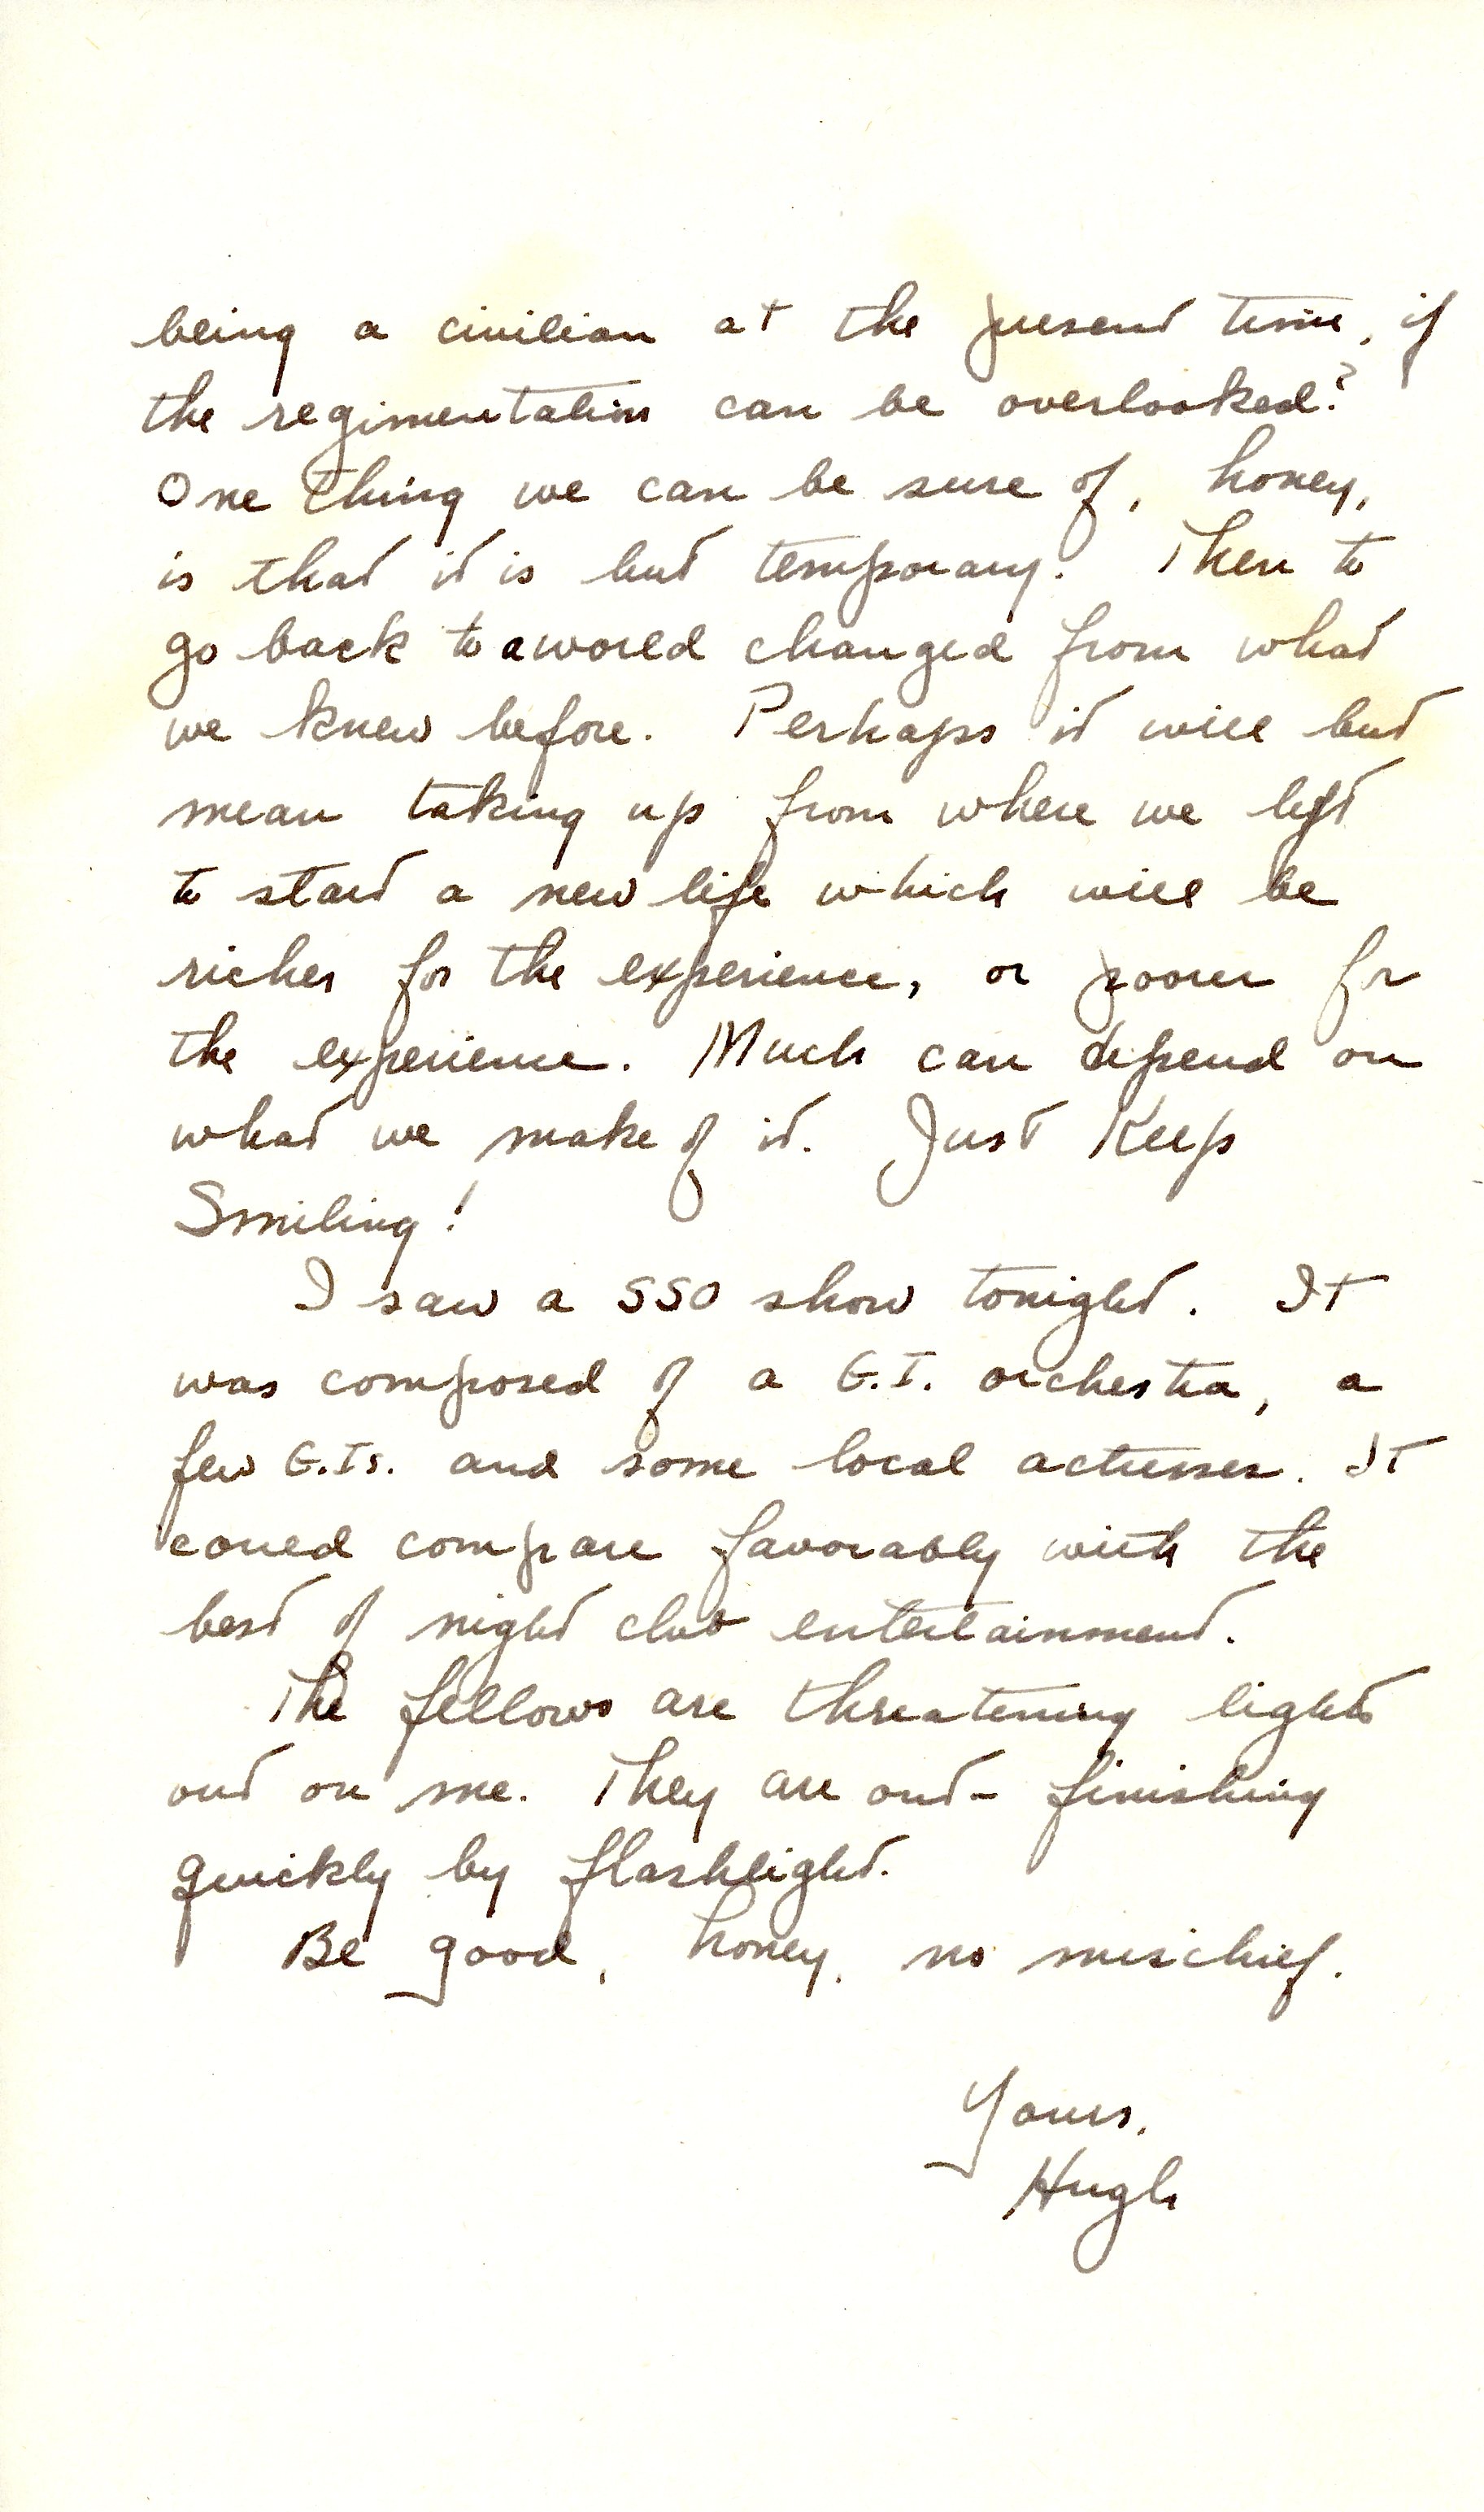 being a civilian at the present time, if
the regimentation can be overlooked?
One thing we can be sure of, honey,
is that it is but temporary. Then to
go back to a world changed from what
we knew before. Perhaps it will but
mean taking up from where we left
to start a new life which will be
richer for the experience, or poorer for
the experience. Much can depend on
what we make of it. Just Keep
Smiling!
I saw a SSO show tonight. It
was composed of a G.I. orchestra, a
few G.Is. and some local actresses. It
could compare favorably with the
best of night club entertainment.
The fellows are threatening lights
out on me. They are out - finishing
quickly by flashlight.
Be good, honey, no mischief.
Yours,
Hugh